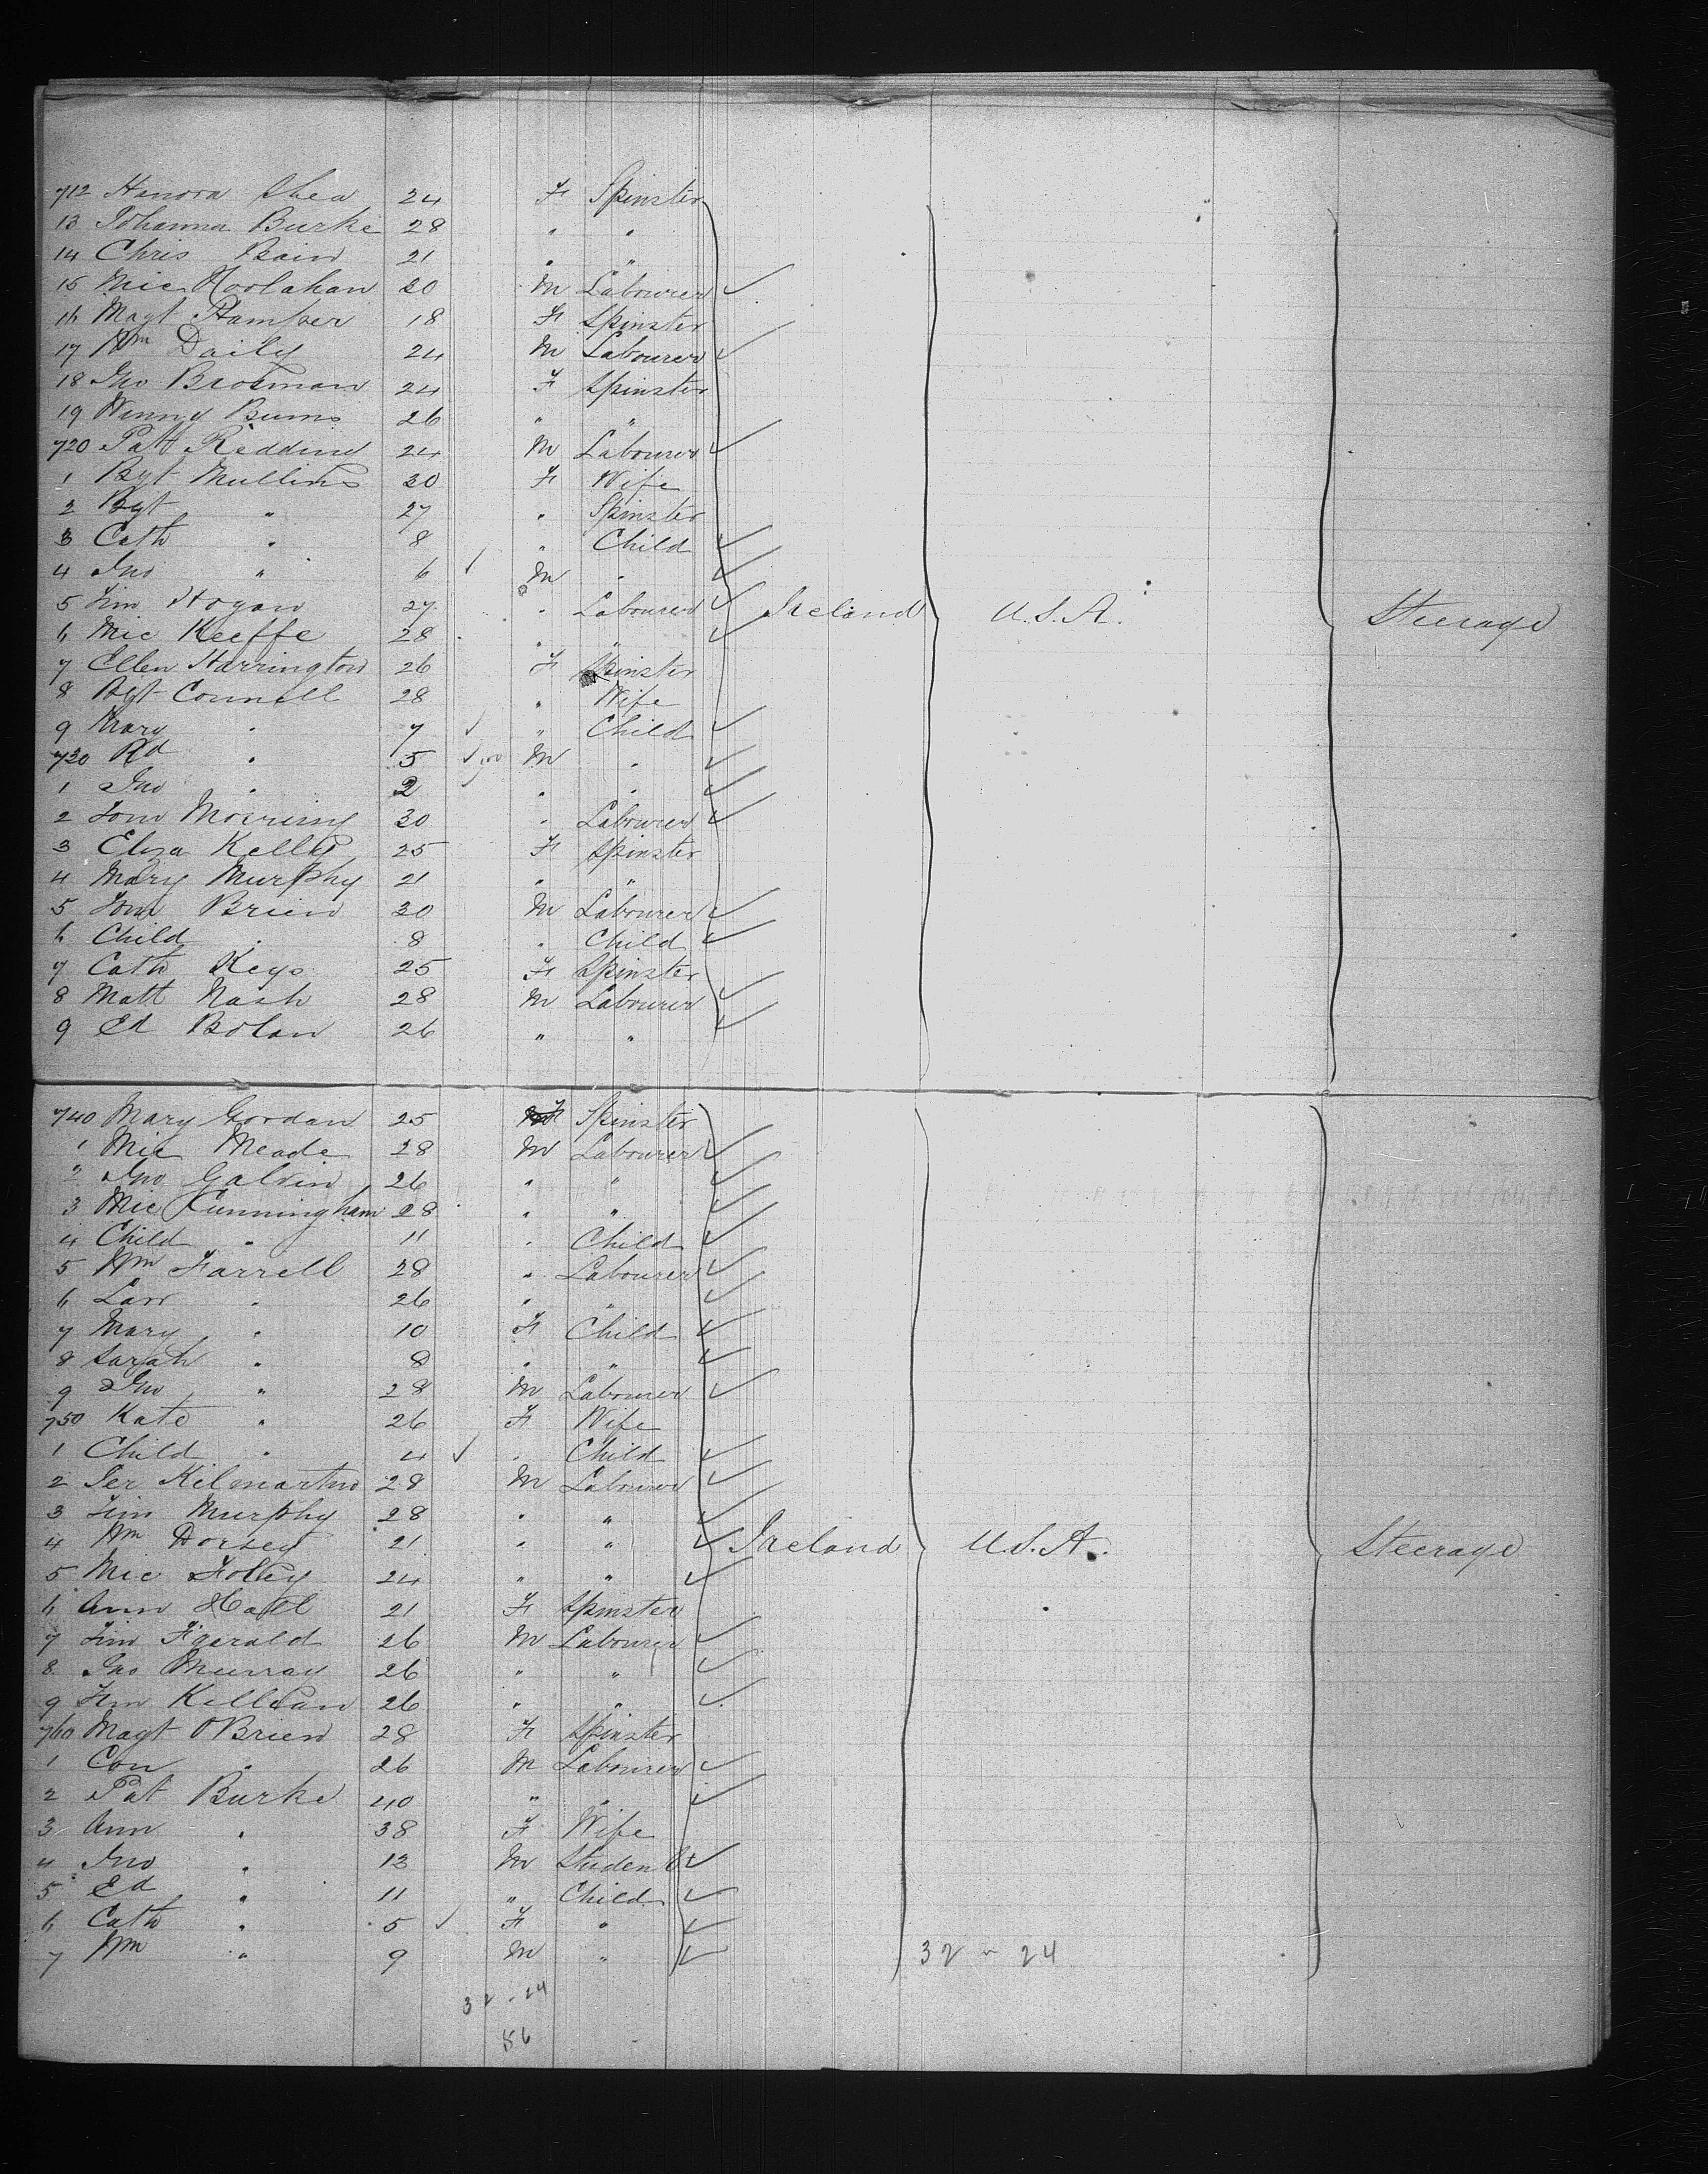 712 Hanora Shea 24 F Spinster
13 Johanna Burke 28 " "
14 Chris Bain 21 " "
15 Mic Hoolahan 20 M Labourer ✓
16 Magt Stamper 18 F Spinster
17 Wm Daily 24 M Labourer ✓
18 Jno Brosman 24 F Spinster
19 Winny Burns 26 " "
720 Patt Reddin 24 M Labourer ✓
1 Bgt Mullins 30 F Wife
2 Bgt " 27 " Spinster
3 Cath " 8 " Child ✓
4 Jno " 6 ✓ M " ✓
5 Jim Hogan 27 " Labourer ✓ Ireland U.S.A. Steerage
6 Mic Keeffe 28 " " ✓
7 Ellen Harrington 26 F Spinster
8 Bgt Connell 28 " Wife
9 Mary " 7 ✓ " Child ✓
730 Rd " 5 ✓ M " ✓
1 Jno " 2 ✓ " " ✓
2 Tom 30 " Labourer ✓
3 Eliza Kelly 25 F Spinster
4 Mary Murphy 21 " "
5 Tom Brien 30 M Labourer ✓
6 Child " 8 " Child ✓
7 Cath Keys 25 F Spinster
8 Matt Nash 28 M Labourer ✓
9 Ed Bolan 26 " " ✓
740 Mary Gordan 25 F Spinster
1 Mic Meade 28 M Labourer ✓
2 Jno Galvin 26 " " ✓
3 Mic Cunningham 28 " " ✓
4 Child " 11 " Child ✓
5 Wm Farrell 28 " Labourer ✓
6 Lar " 26 " " ✓
7 Mary " 10 F Child ✓
8 Sarah " 8 " " ✓
9 Jno " 28 M Labourer ✓
750 Kate " 26 F Wife
1 Child " 4 ✓ " Child ✓
2 Jer Kilmartin 28 M Labourer ✓
3 Jim Murphy 28 " " ✓
4 Wm Dorsey 21 " " ✓ Ireland U.S.A. Steerage
5 Mic Foley 24 " " ✓
6 Ann Hall 21 F Spinster
7 Jim Fgerald 26 M Labourer ✓
8 Jno Murray 26 " " ✓
9 Jim Killean 26 " " ✓
760 Magt OBrien 28 F Spinster
1 Con " 26 M Labourer ✓
2 Pat Burke 40 " " ✓
3 Ann " 38 F Wife
4 Jno " 13 M Student ✓
5 Ed " 11 " Child ✓
6 Cath " 5 ✓ F " ✓
7 Wm " 9 M " ✓
32 - 24
32 - 24
56